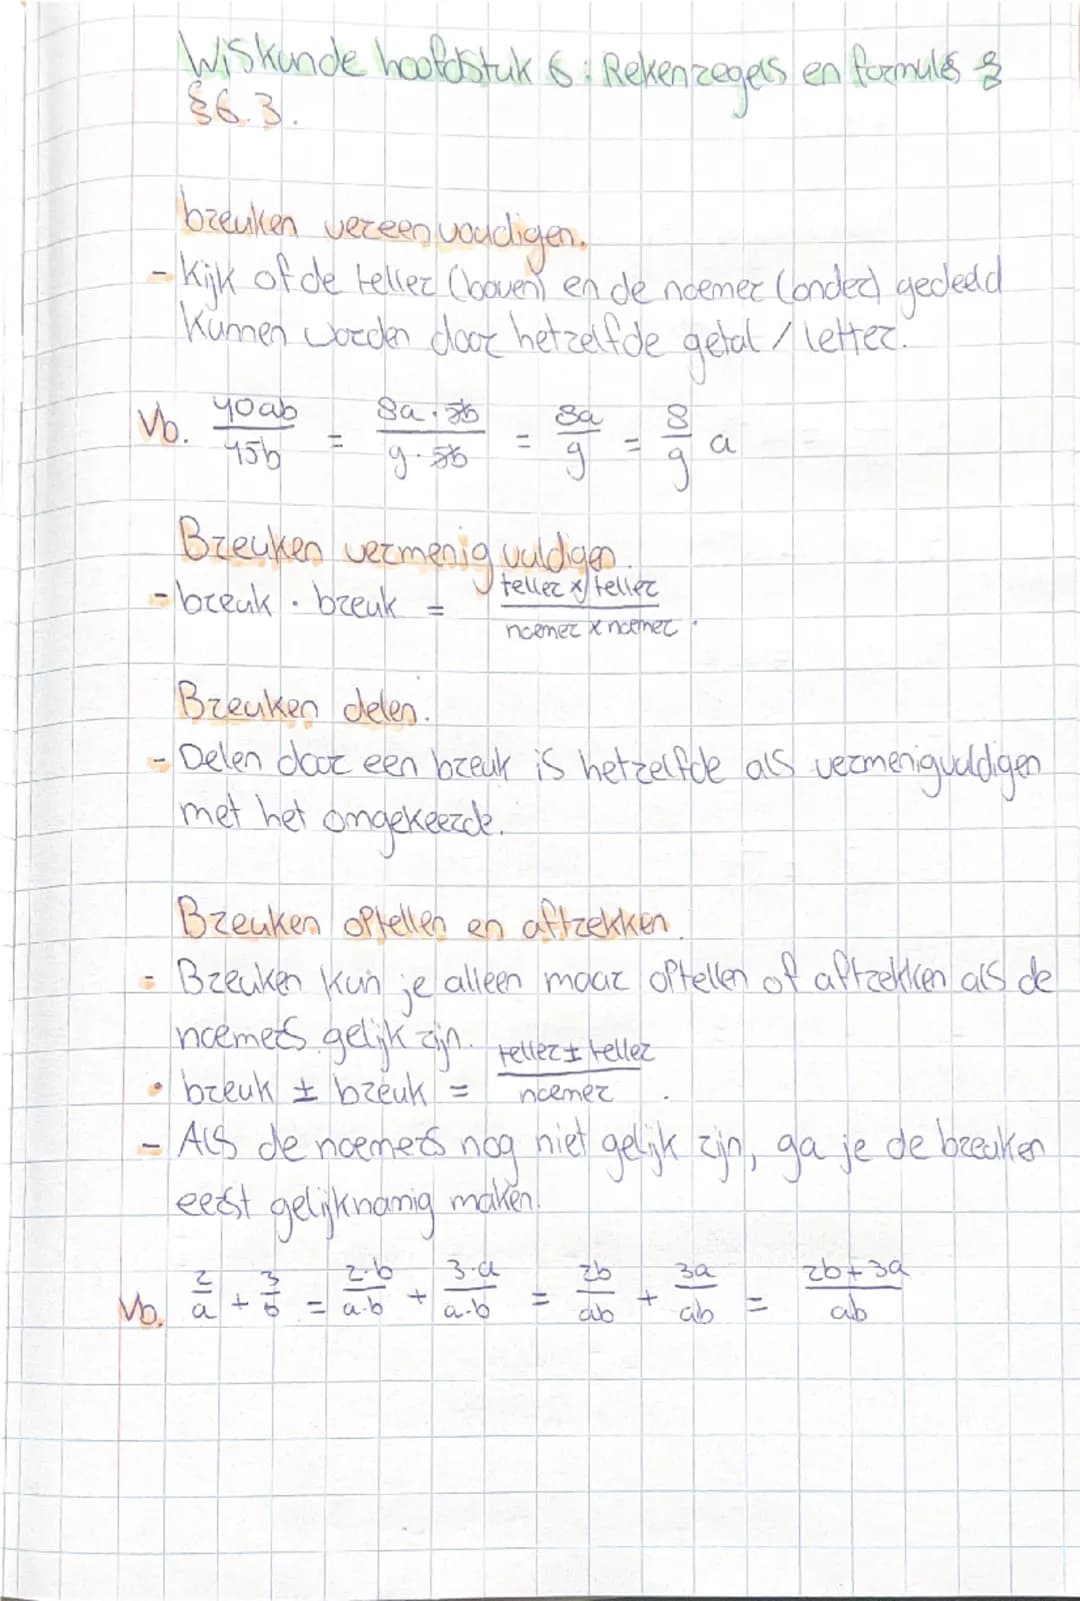 Wiskunde hoofdstuk 6: Rekenregels en formules
§6.3.
breuken vereenvoudigen.
- Kijk of de teller (boven) en de noemer (onder) gedeeld
kunnen worden door hetzelfde getal / letter.
Vb. 40ab/45b = 8a·5b/9·5b = 8a/9 = 8/9 a
Breuken vermenigvuldigen.
- breuk · breuk = teller x teller / noemer x noemer.
Breuken delen.
- Delen door een breuk is hetzelfde als vermenigvuldigen
met het omgekeerde.
Breuken optellen en aftrekken.
- Breuken kun je alleen maar optellen of aftrekken als de
noemers gelijk zijn.
• breuk ± breuk = teller ± teller / noemer.
- Als de noemers nog niet gelijk zijn, ga je de breuken
eerst gelijknamig maken.
Vb. 2/a + 3/b = 2·b/a·b + 3·a/a·b = 2b/ab + 3a/ab = 2b+3a/ab